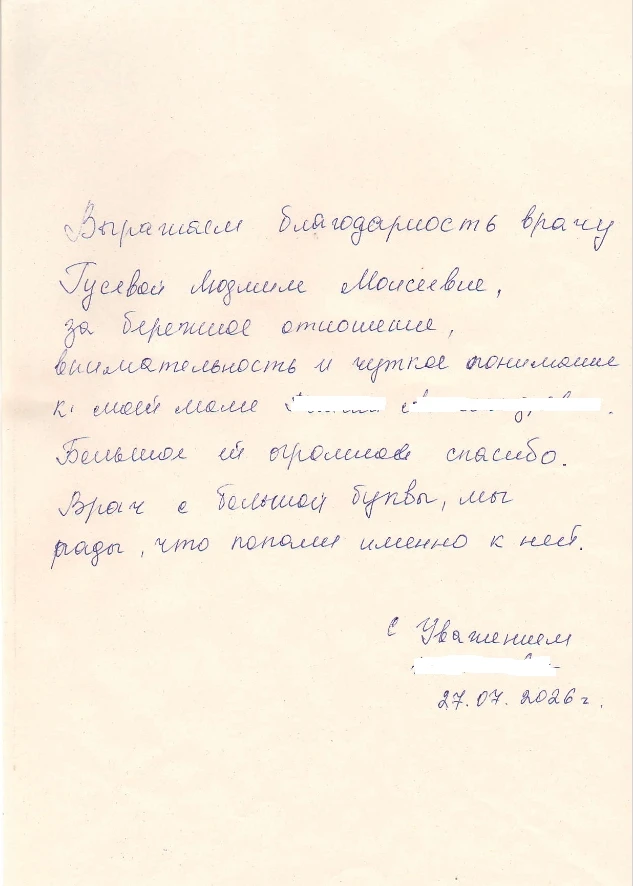 Выражаем благодарность врачу
Гусевой Людмиле Моисеевне,
за бережное отношение,
внимательность и чуткое понимание
к моей маме
Большое ей огромное спасибо.
Врач с большой буквы, мы
рады, что попали именно к ней.
С Уважением
27.07.2026 г.